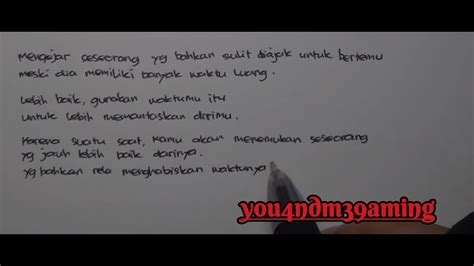 mengejar seseorang yg bahkan sulit diajak untuk bertemu
meski dia memiliki banyak waktu luang.
lebih baik, gunakan waktumu itu
untuk lebih memantaskan dirimu.
karena suatu saat, kamu akan menemukan seseorang
yg jauh lebih baik darinya.
yg bahkan rela menghabiskan waktunya
you4ndm39aming